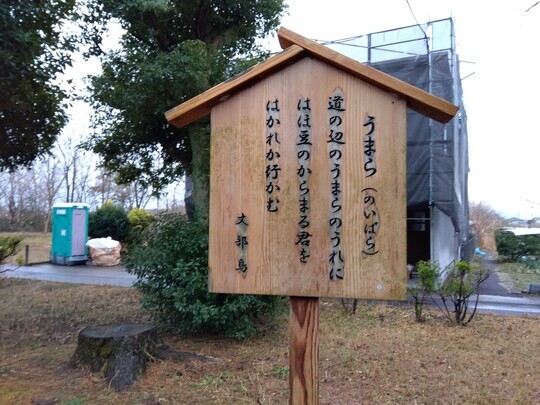 うまら（のいばら）
道の辺のうまらのうれに
はほ豆のからまる君を
はかれか行かむ
丈部鳥